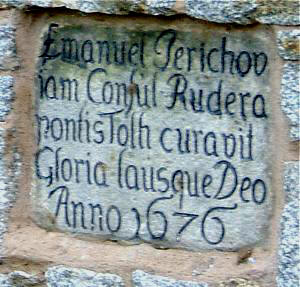 Emanuel Perichov
iam Consul Rudera
pontis Tolh curavit
Gloria lausque Deo
Anno 1676